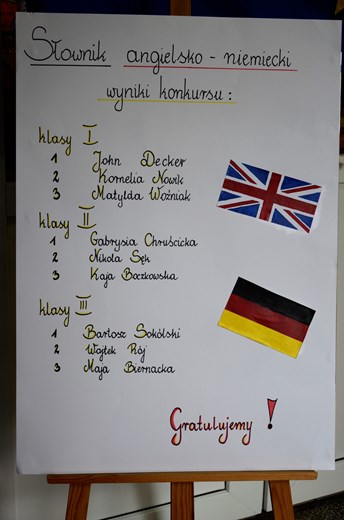 Słownik angielsko - niemiecki
wyniki konkursu :
klasy I
1 John Decker
2 Kornelia Nowik
3 Matylda Woźniak
klasy II
1 Gabrysia Chruścicka
2 Nikola Sęk
3 Kaja Boczkowska
klasy III
1 Bartosz Sokólski
2 Wojtek Rój
3 Maja Biernacka
Gratulujemy !